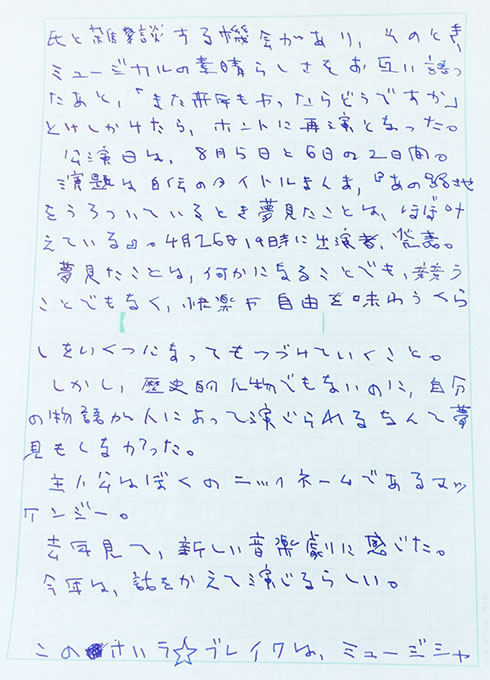 氏と雑談する機会があり、そのとき、
ミュージカルの素晴らしさをお互い語っ
たあと、「また再演をやったらどうですか」
とけしかけたら、ホントに再演となった。
公演日は、8月5日と6日の2日間。
演題は自伝のタイトルまんま、『あの路地
をうろついているとき夢見たことは、ほぼ叶
えている』。4月26日19時に出演者、発表。
夢見たことは、何かになることでも、
ことでもなく、快楽や自由を味わうくら
しをいくつになってもつづけていくこと。
しかし、歴史的人物でもないのに、自分
の物語が人によって演じられるなんて夢
見もしなかった。
主人公はぼくのニックネームであるマッ
ケンジー。
去年見て、新しい音楽劇に感じた。
今年は、話をかえて演じるらしい。
この さいラ☆ブレイクは、ミュージシャ